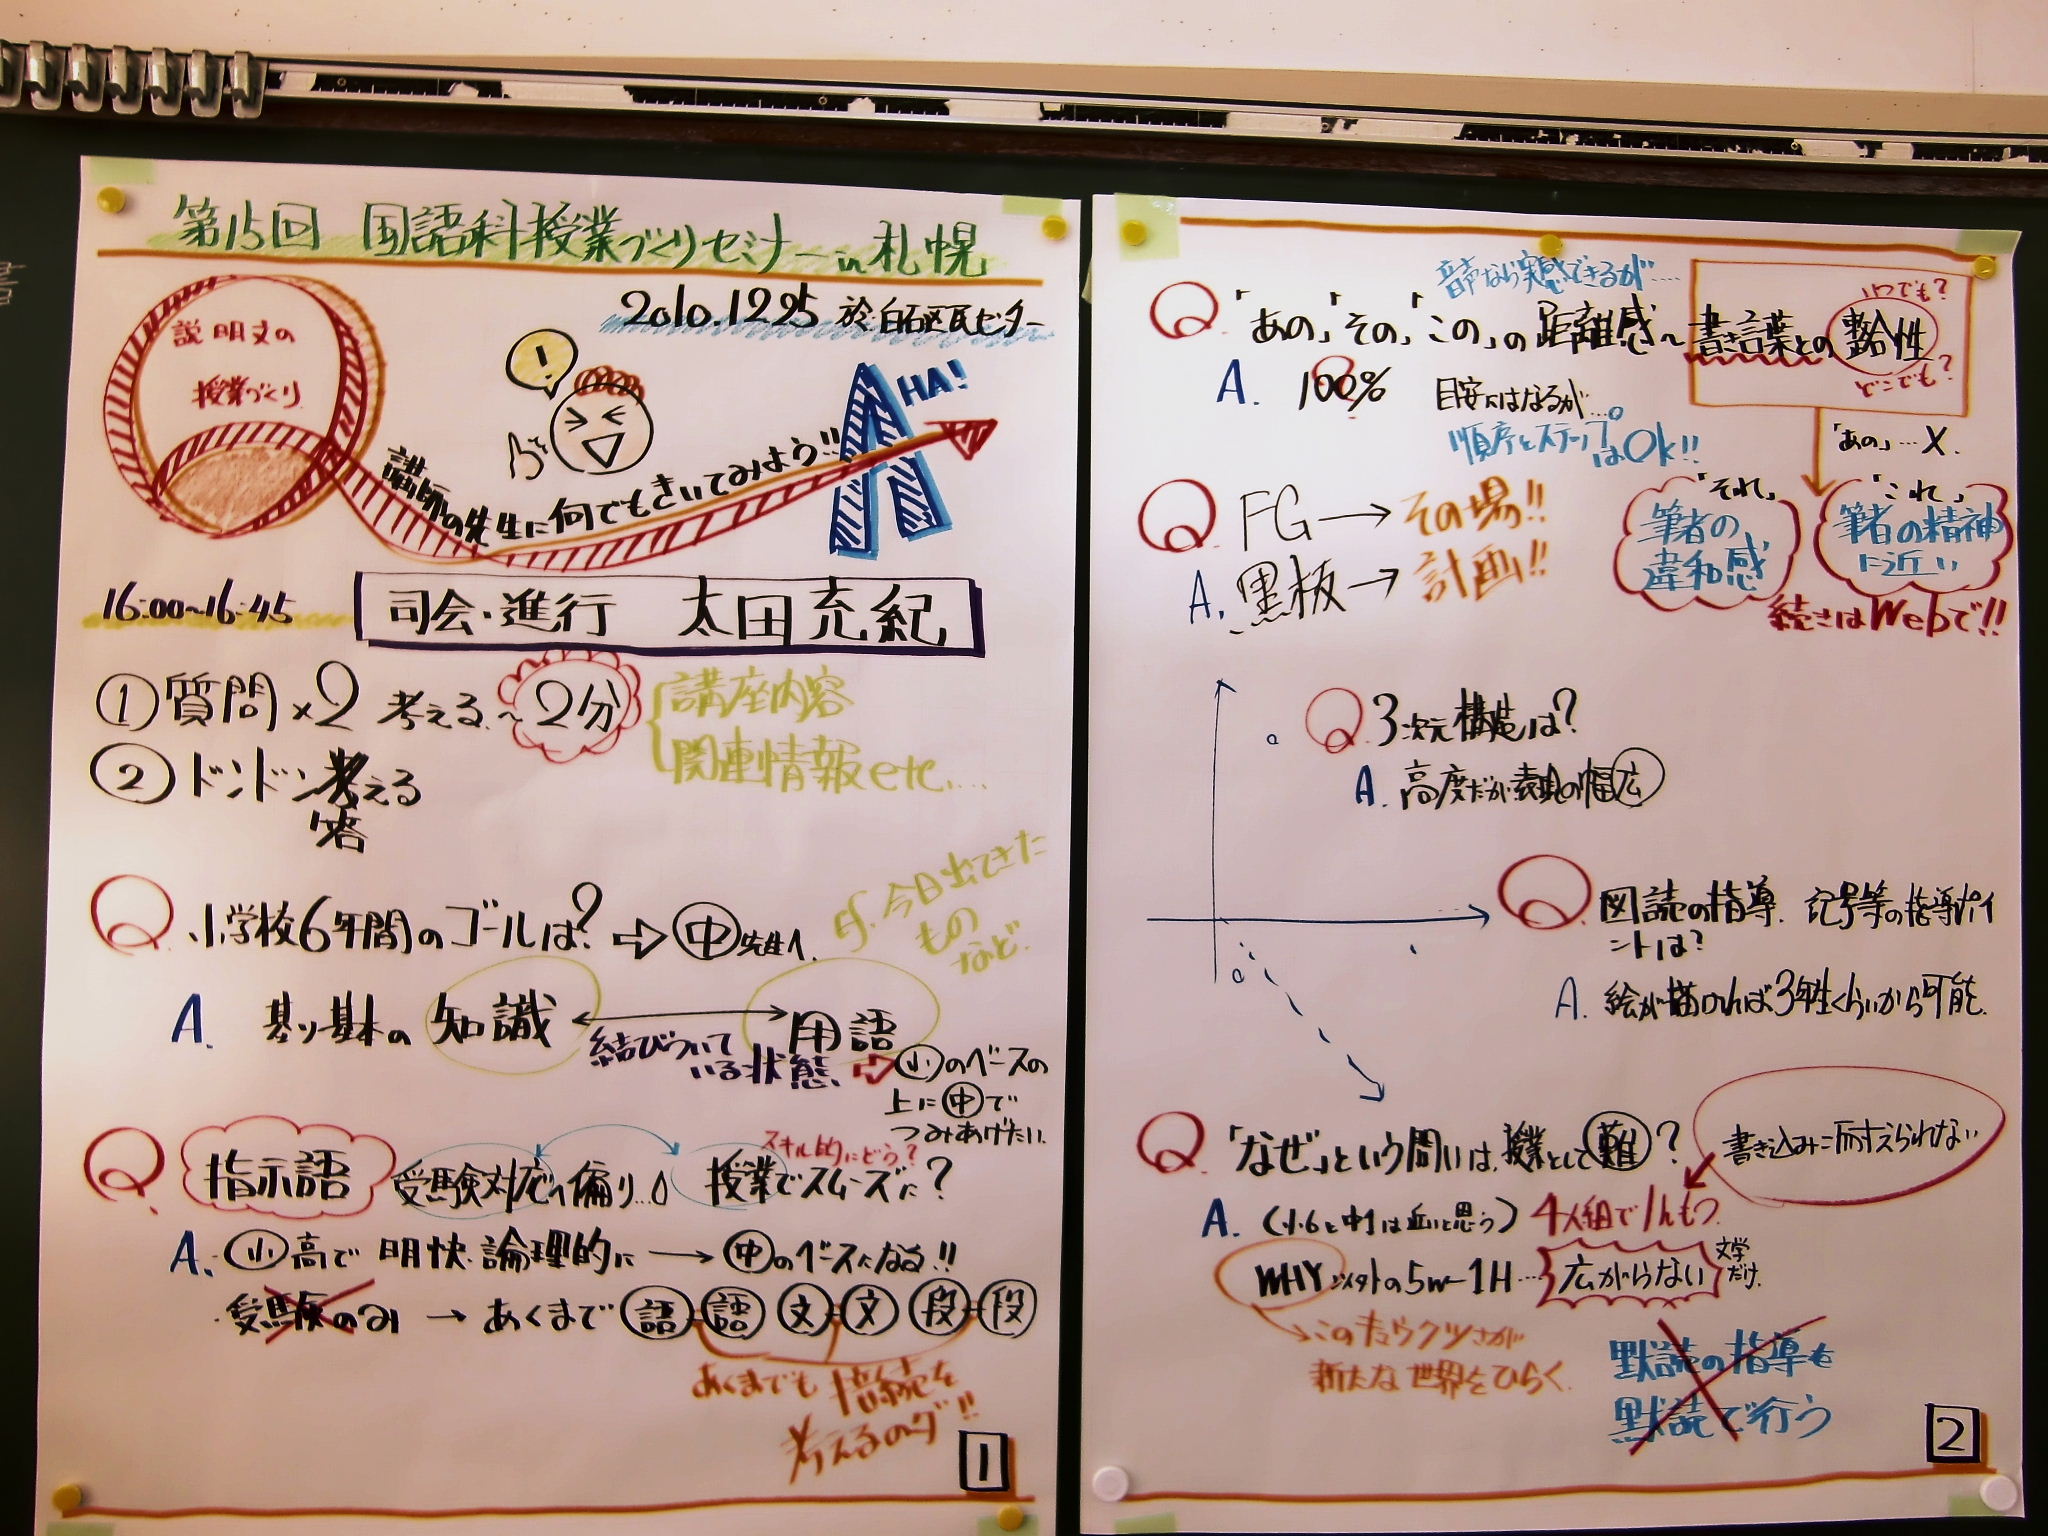 第15回 国語科授業づくりセミナー in 札幌
2010.12.25 於 白石区民センター
説明文の
授業づくり
!
講師の先生に何でもきいてみよう!!
HA!
16:00~16:45
司会・進行 太田充紀
① 質問×2 考える~2分
講座内容
関連情報etc....
② ドンドン考える
答
Q 小学校6年間のゴールは? ⇨ ㊥先生へ.
ef.今日出てきた
もの
など.
A. 基ソ基本の 知識 ←→ 用語
結びついて
いる状態
⇨ ㊤のベースの
上に㊥で
つみあげたい.
Q. 指示語 受験対応へ偏り... 授業でスムーズに?
スキル的にどう?
A. 小高で 明快・論理的に → ㊥のベースになる!!
・受験のみ → あくまで 語-語 文-文 段-段
あくまでも 接続を
考えるのダ!!
1
音声なら実感できるが.....
Q. 「あの」「その」「この」の距離感~書き言葉との整合性
いつでも?
どこでも?
A. 100% 目安にはなるが...。
順序とステップ
はOk!!
「あの」...X.
「それ」
筆者の
違和感
「これ」
筆者の精神
に近い
続きはWebで!!
Q. FG → その場!!
A. 黒板 → 計画!!
Q. 3次元構造は?
A. 高度だが表現の幅広
Q. 図読の指導. 記号等の指導ポイ
ントは?
A. 絵が描ければ3年生くらいから可能.
Q. 「なぜ」という問いは、授業として難?
書き込みに耐えられない
A. (小6と中1は近いと思う) 4人組で1hもつ.
WHY ソイタトの5w-1H... 広がらない 文学だけ.
このキュウクツさが
新たな世界をひらく.
黙読の指導も
黙読で行う
2